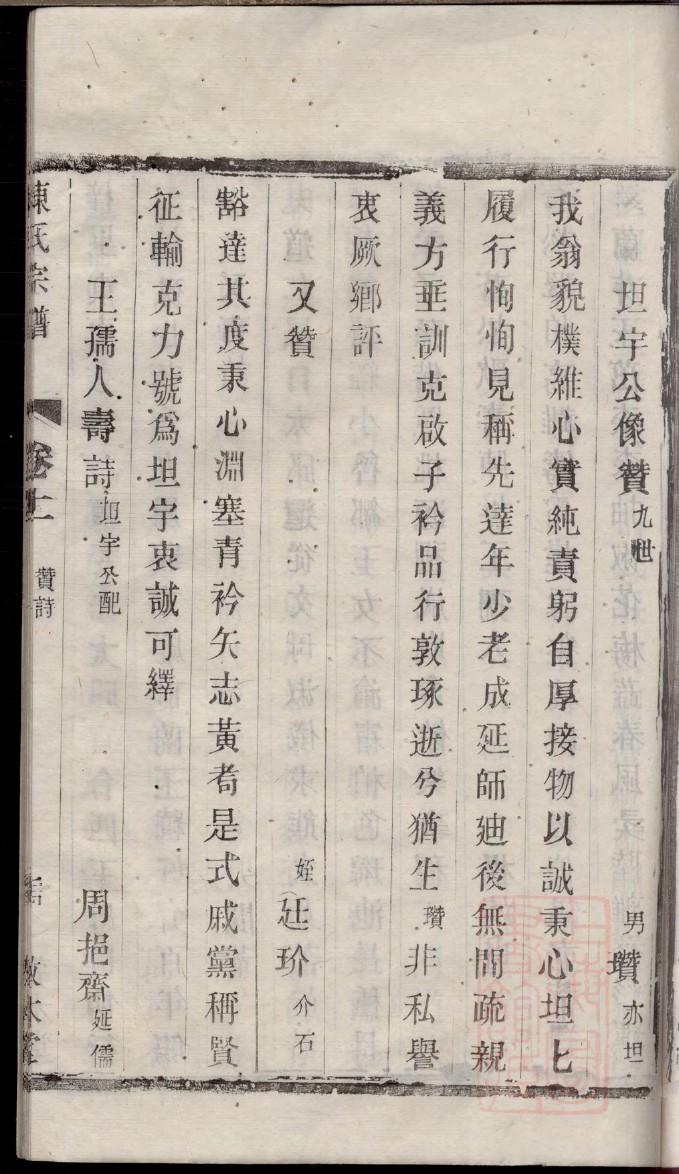 坦宇公像贊 九世 男 瓚 亦坦
我翁貌樸維心實純責躬自厚接物以誠秉心坦匕
履行恂恂見稱先達年少老成延師廸後無間疏親
義方垂訓克啟子衿品行敦琢逝兮猶生瓚非私譽
衷厥鄉評
又贊 姪 廷玠 介石
豁達其度秉心淵塞青衿矢志黃耈是式戚黨稱賢
征輸克力號爲坦宇衷誠可繹
王孺人壽詩 坦宇公配 周挹齋 延儒
陳氏宗譜 卷上 贊詩 敦本堂